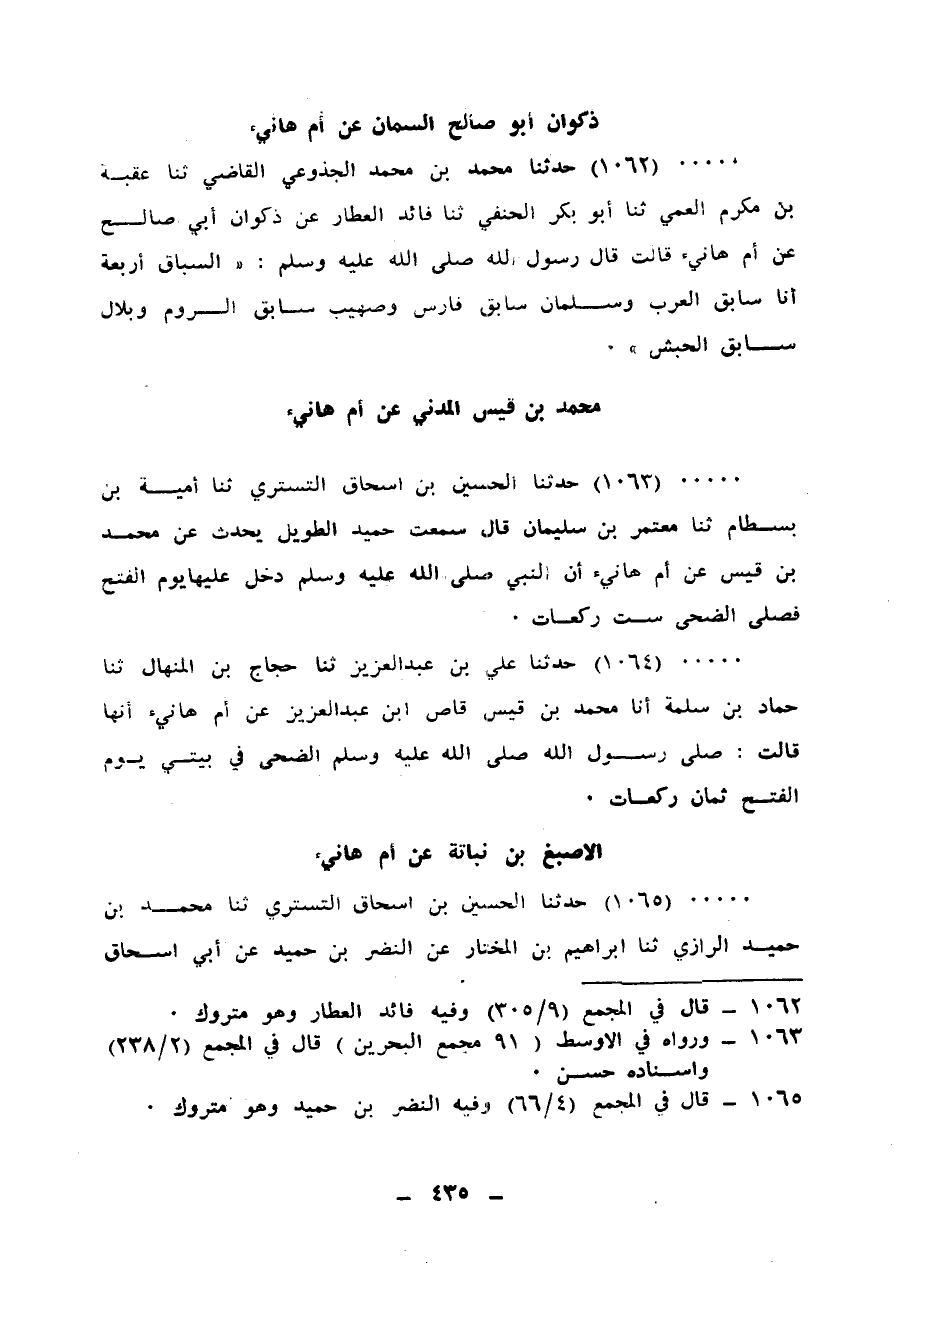 ذكوان أبو صالح السمان عن أم هانيء
..... (١٠٦٢) حدثنا محمد بن محمد الجذوعي القاضي ثنا عقبة
بن مكرم العمي ثنا أبو بكر الحنفي ثنا فائد العطار عن ذكوان أبي صالح
عن أم هانيء قالت قال رسول الله صلى الله عليه وسلم : « السباق أربعة
أنا سابق العرب وسلمان سابق فارس وصهيب سابق الروم وبلال
سابق الحبش » .
محمد بن قيس المدني عن أم هانيء
..... (١٠٦٣) حدثنا الحسين بن اسحاق التستري ثنا أمية بن
بسطام ثنا معتمر بن سليمان قال سمعت حميد الطويل يحدث عن محمد
بن قيس عن أم هانيء أن النبي صلى الله عليه وسلم دخل عليهايوم الفتح
فصلى الضحى ست ركعات .
..... (١٠٦٤) حدثنا علي بن عبدالعزيز ثنا حجاج بن المنهال ثنا
حماد بن سلمة أنا محمد بن قيس قاص ابن عبدالعزيز عن أم هانيء أنها
قالت : صلى رسول الله صلى الله عليه وسلم الضحى في بيتي يوم
الفتح ثمان ركعات .
الاصبغ بن نباتة عن أم هانيء
..... (١٠٦٥) حدثنا الحسين بن اسحاق التستري ثنا محمد بن
حميد الرازي ثنا ابراهيم بن المختار عن النضر بن حميد عن أبي اسحاق
١٠٦٢ ــ قال في المجمع (٣٠٥/٩) وفيه فائد العطار وهو متروك .
١٠٦٣ ــ ورواه في الاوسط ( ٩١ مجمع البحرين ) قال في المجمع (٢٣٨/٢)
واسناده حسن .
١٠٦٥ ــ قال في المجمع (٦٦/٤) وفيه النضر بن حميد وهو متروك .
ــ ٤٣٥ ــ